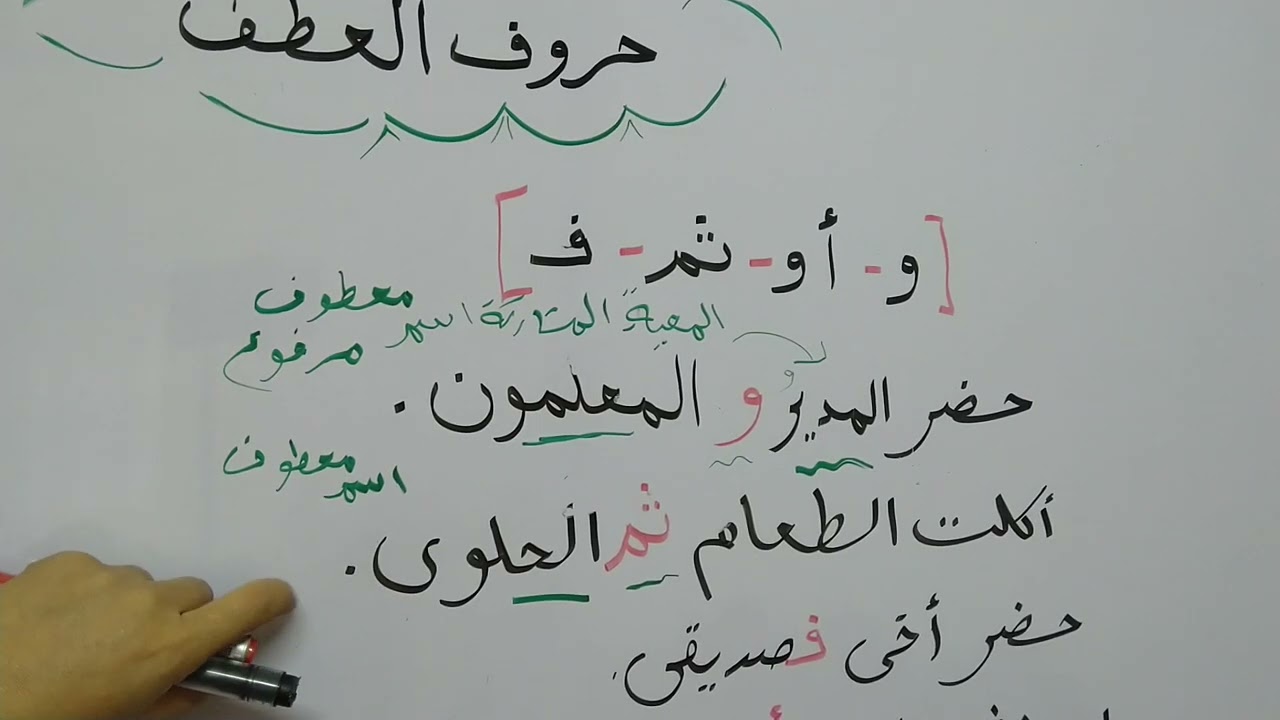 حروف العطف
[و - أو - ثم - ف]
المعية المشاركة اسم معطوف
مرفوع
حضر المديرُ و المعلمون.
اسم معطوف
أكلت الطعام ثم الحلوى.
حضر أخى فصديقى.